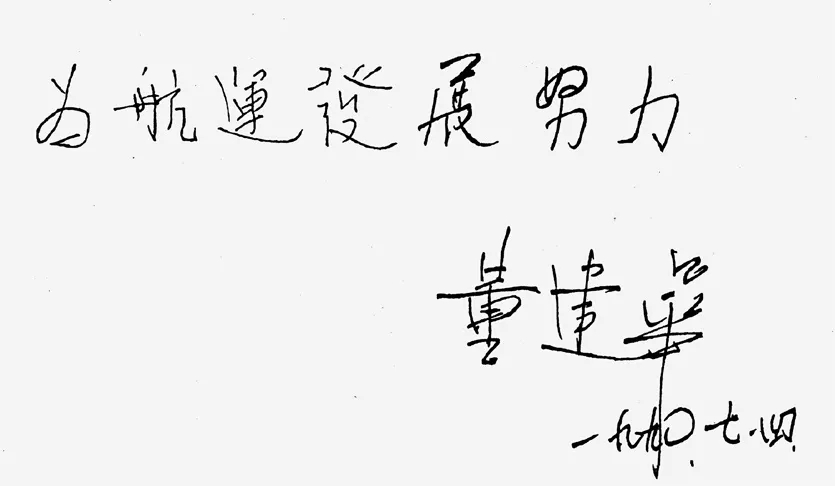 为航運發展努力
董建華
一九九〇.七.四.